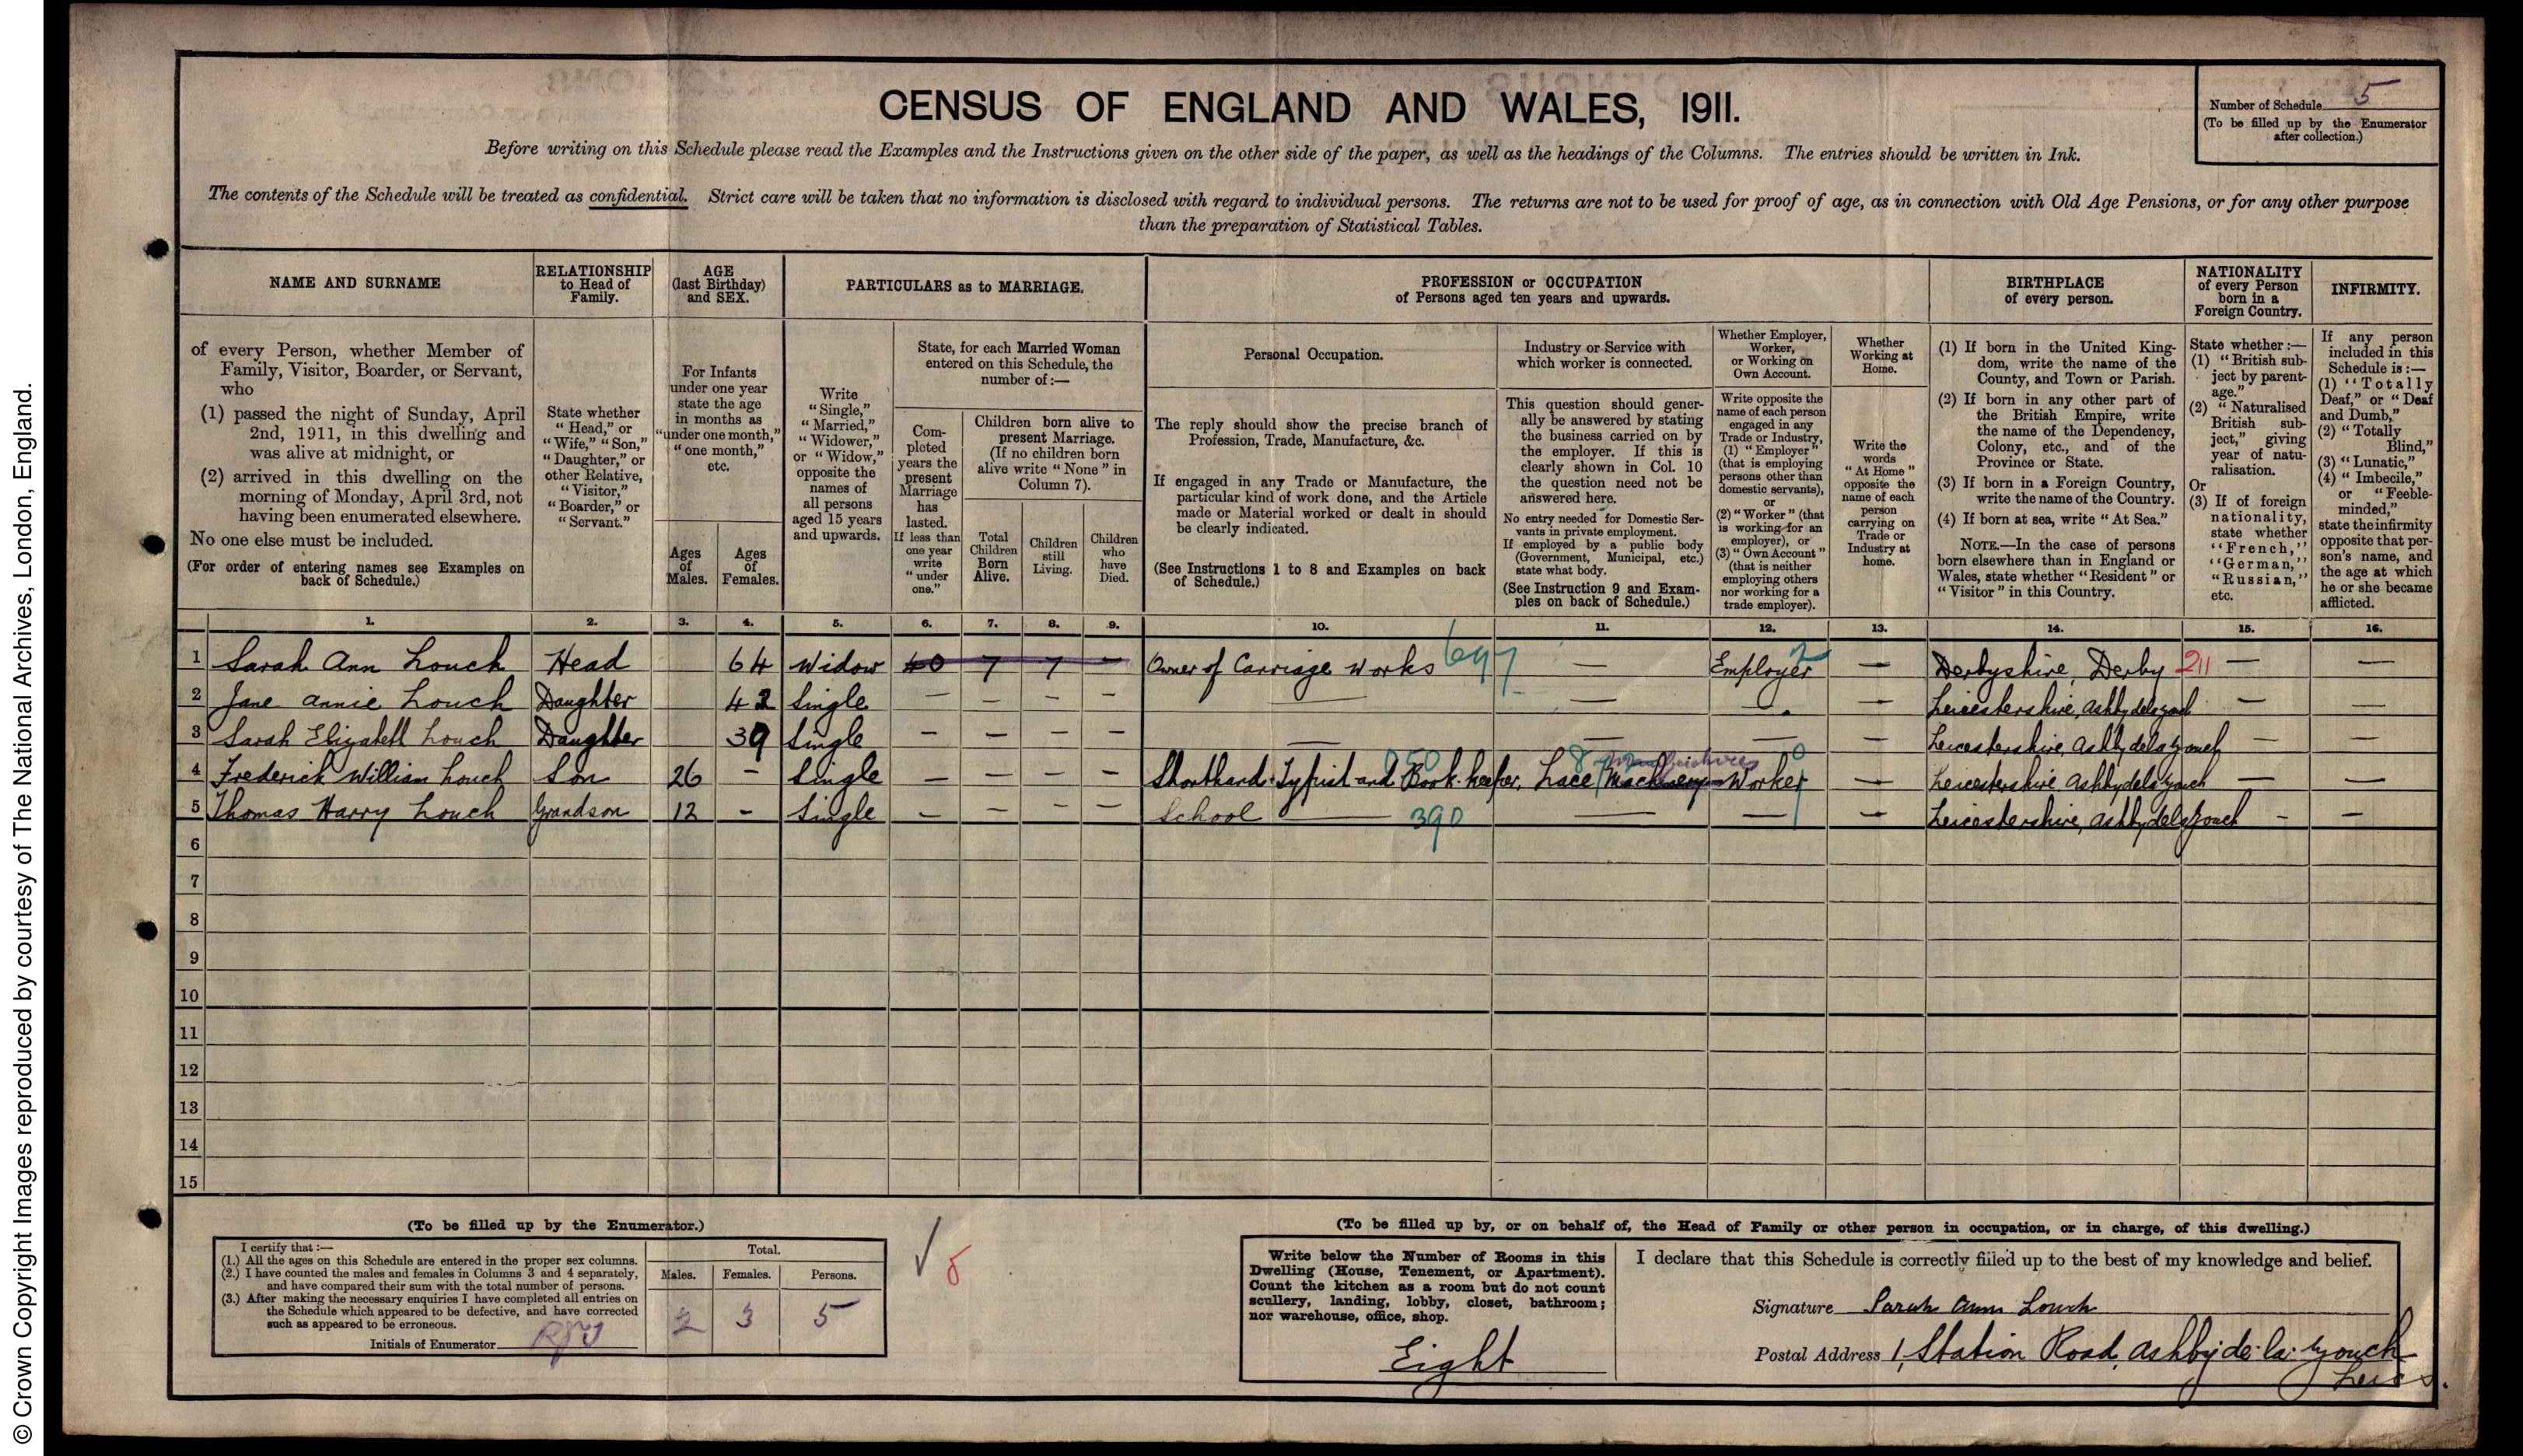 © Crown Copyright Images reproduced by courtesy of The National Archives, London, England.
CENSUS OF ENGLAND AND WALES, 1911.
Number of Schedule 5
(To be filled up by the Enumerator
after collection.)
Before writing on this Schedule please read the Examples and the Instructions given on the other side of the paper, as well as the headings of the Columns. The entries should be written in Ink.
The contents of the Schedule will be treated as confidential. Strict care will be taken that no information is disclosed with regard to individual persons. The returns are not to be used for proof of age, as in connection with Old Age Pensions, or for any other purpose
than the preparation of Statistical Tables.
NAME AND SURNAME
of every Person, whether Member of
Family, Visitor, Boarder, or Servant,
who
(1) passed the night of Sunday, April
2nd, 1911, in this dwelling and
was alive at midnight, or
(2) arrived in this dwelling on the
morning of Monday, April 3rd, not
having been enumerated elsewhere.
No one else must be included.
(For order of entering names see Examples on
back of Schedule.)
RELATIONSHIP
to Head of
Family.
State whether
"Head," or
"Wife," "Son,"
"Daughter," or
other Relative,
"Visitor,"
"Boarder," or
"Servant."
AGE
(last Birthday)
and SEX.
For Infants
under one year
state the age
in months as
"under one month,"
"one month,"
etc.
Ages
of
Males.
Ages
of
Females.
PARTICULARS as to MARRIAGE.
Write
"Single,"
"Married,"
"Widower,"
or "Widow,"
opposite the
names of
all persons
aged 15 years
and upwards.
State, for each Married Woman
entered on this Schedule, the
number of:—
Com-
pleted
years the
present
Marriage
has
lasted.
If less than
one year
write
"under
one."
Children born alive to
present Marriage.
(If no children born
alive write "None" in
Column 7).
Total
Children
Born
Alive.
Children
still
Living.
Children
who
have
Died.
PROFESSION or OCCUPATION
of Persons aged ten years and upwards.
Personal Occupation.
The reply should show the precise branch of
Profession, Trade, Manufacture, &c.
If engaged in any Trade or Manufacture, the
particular kind of work done, and the Article
made or Material worked or dealt in should
be clearly indicated.
(See Instructions 1 to 8 and Examples on back
of Schedule.)
Industry or Service with
which worker is connected.
This question should gener-
ally be answered by stating
the business carried on by
the employer. If this is
clearly shown in Col. 10
the question need not be
answered here.
No entry needed for Domestic Ser-
vants in private employment.
If employed by a public body
(Government, Municipal, etc.)
state what body.
(See Instruction 9 and Exam-
ples on back of Schedule.)
Whether Employer,
Worker,
or Working on
Own Account.
Write opposite the
name of each person
engaged in any
Trade or Industry,
(1) "Employer"
(that is employing
persons other than
domestic servants),
or
(2) "Worker" (that
is working for an
employer), or
(3) "Own Account"
(that is neither
employing others
nor working for a
trade employer).
Whether
Working at
Home.
Write the
words
"At Home"
opposite the
name of each
person
carrying on
Trade or
Industry at
home.
BIRTHPLACE
of every person.
(1) If born in the United King-
dom, write the name of the
County, and Town or Parish.
(2) If born in any other part of
the British Empire, write
the name of the Dependency,
Colony, etc., and of the
Province or State.
(3) If born in a Foreign Country,
write the name of the Country.
(4) If born at sea, write "At Sea."
NOTE.—In the case of persons
born elsewhere than in England or
Wales, state whether "Resident" or
"Visitor" in this Country.
NATIONALITY
of every Person
born in a
Foreign Country.
State whether:—
(1) "British sub-
ject by parent-
age."
(2) "Naturalised
British sub-
ject," giving
year of natu-
ralisation.
Or
(3) If of foreign
nationality,
state whether
"French,"
"German,"
"Russian,"
etc.
INFIRMITY.
If any person
included in this
Schedule is:—
(1) "Totally
Deaf," or "Deaf
and Dumb,"
(2) "Totally
Blind,"
(3) "Lunatic,"
(4) "Imbecile,"
or "Feeble-
minded,"
state the infirmity
opposite that per-
son's name, and
the age at which
he or she became
afflicted.
1. 2. 3. 4. 5. 6. 7. 8. 9. 10. 11. 12. 13. 14. 15. 16.
1 Sarah Ann Louch Head 64 Widow 40 7 7 — Owner of Carriage Works 697 — Employer 2 — Derbyshire, Derby 211 — —
2 Jane Annie Louch Daughter 42 Single — — — — — — Leicestershire, Ashby dela Zouch — —
3 Sarah Elizabeth Louch Daughter 39 Single — — — — — — — — Leicestershire, Ashby dela Zouch
4 Frederick William Louch Son 26 - Single — — — — Shorthand-Typist and Book-keeper, Lace Machinery Worker — Leicestershire, Ashby dela Zouch — —
5 Thomas Harry Louch Grandson 12 - Single — — — — School — 390 — — — Leicestershire, Ashby dela Zouch - —
6
7
8
9
10
11
12
13
14
15
(To be filled up by the Enumerator.)
I certify that:—
(1.) All the ages on this Schedule are entered in the proper sex columns.
(2.) I have counted the males and females in Columns 3 and 4 separately,
and have compared their sum with the total number of persons.
(3.) After making the necessary enquiries I have completed all entries on
the Schedule which appeared to be defective, and have corrected
such as appeared to be erroneous.
Initials of Enumerator
Total.
Males. Females. Persons.
2 3 5
(To be filled up by, or on behalf of, the Head of Family or other person in occupation, or in charge, of this dwelling.)
Write below the Number of Rooms in this
Dwelling (House, Tenement, or Apartment).
Count the kitchen as a room but do not count
scullery, landing, lobby, closet, bathroom;
nor warehouse, office, shop.
Eight
I declare that this Schedule is correctly filled up to the best of my knowledge and belief.
Signature Sarah Ann Louch
Postal Address 1, Station Road, Ashby-de-la-Zouch
Leics.